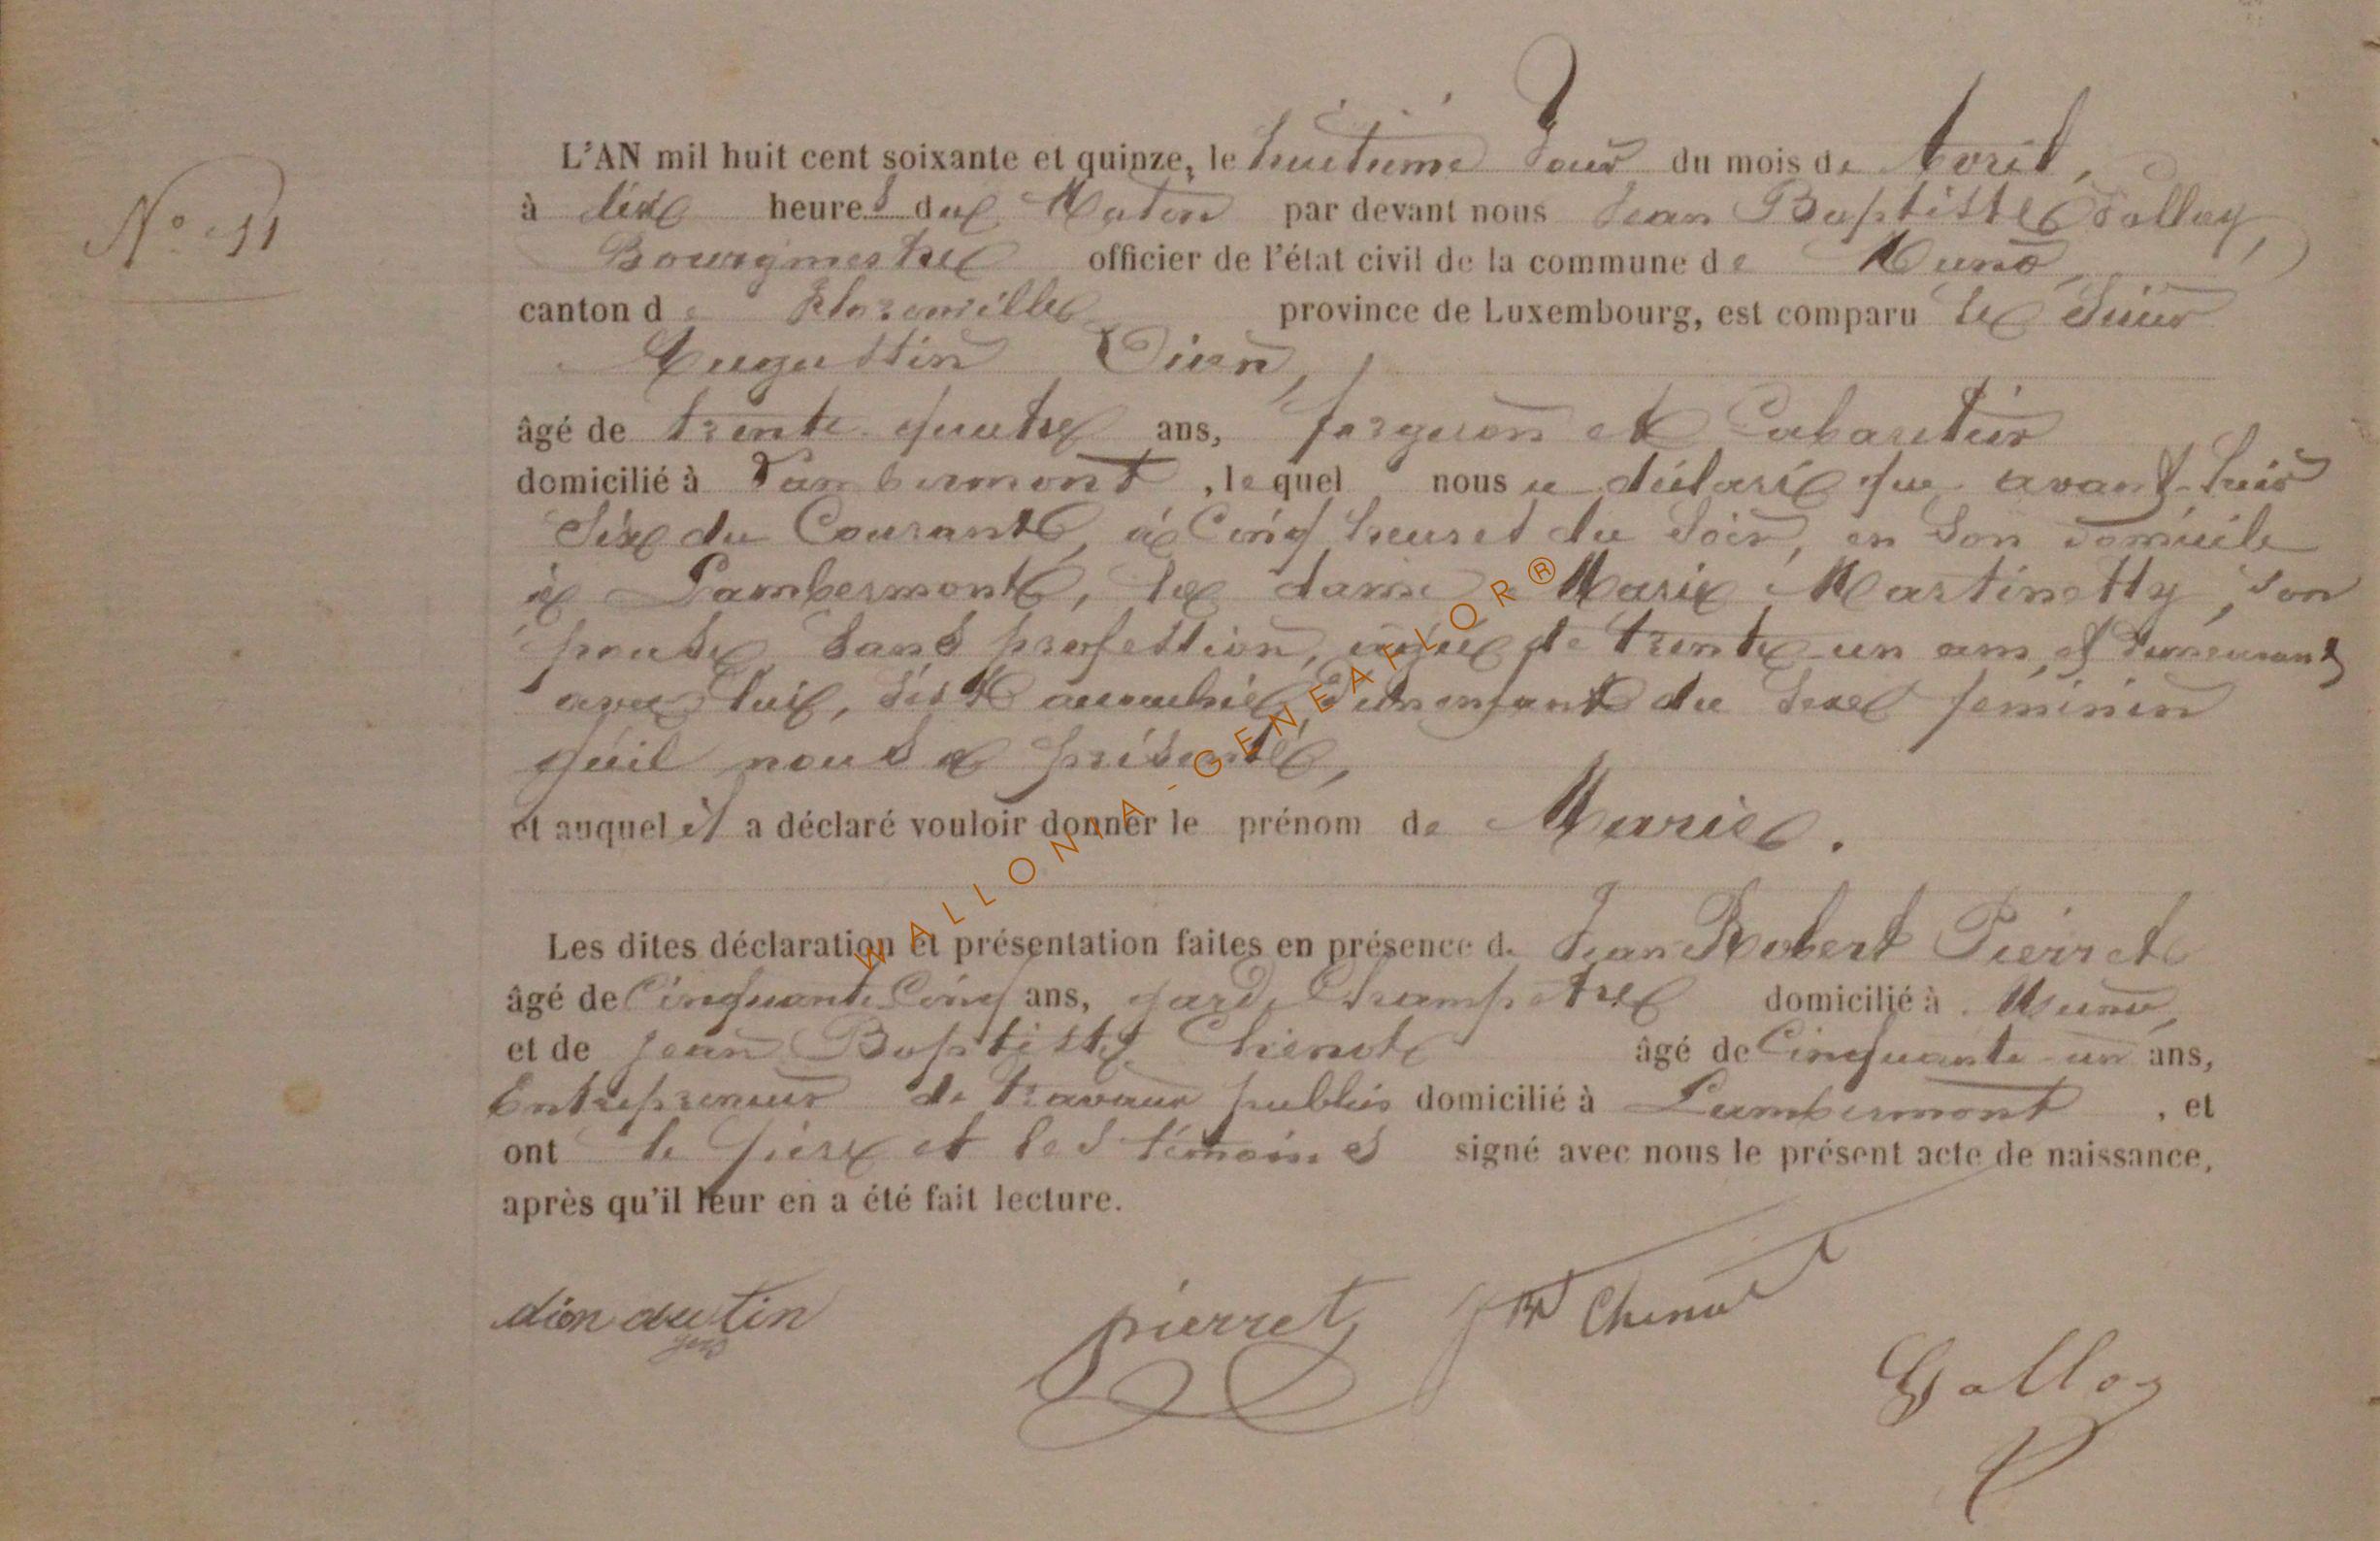 L'AN mil huit cent soixante et quinze, le huitième Jour du mois de Avril,
N° 11
à dix heures du Matin par devant nous Jean Baptiste Galloy,
Bourgmestre officier de l'état civil de la commune de Muno,
canton de Florenville province de Luxembourg, est comparu le Sieur
Augustin Dion,
âgé de trente quatre ans, forgeron et Cabaretier
domicilié à Lambermont, lequel nous a déclaré que avant-hier
Six du Courant, à Cinq heures du Soir, en Son domicile
à Lambermont, la dame Marie Martinetty, Son
épouse, Sans profession, âgée de trente-un ans, et demeurant
avec lui, est accouchée d'un enfant du Sexe féminin
qu'il nous a présenté,
et auquel il a déclaré vouloir donner le prénom de Marie.
Les dites déclaration et présentation faites en présence de Jean Robert Pierret
âgé de Cinquante Cinq ans, garde Champêtre domicilié à Muno,
et de Jean Baptiste Chenot âgé de Cinquante-un ans,
Entrepreneur de travaux publics domicilié à Lambermont, et
ont le père et les témoins signé avec nous le présent acte de naissance,
après qu'il leur en a été fait lecture.
dion autin pierret JB Chenot
Galloy
WALLONIA-GENEAFLOR®